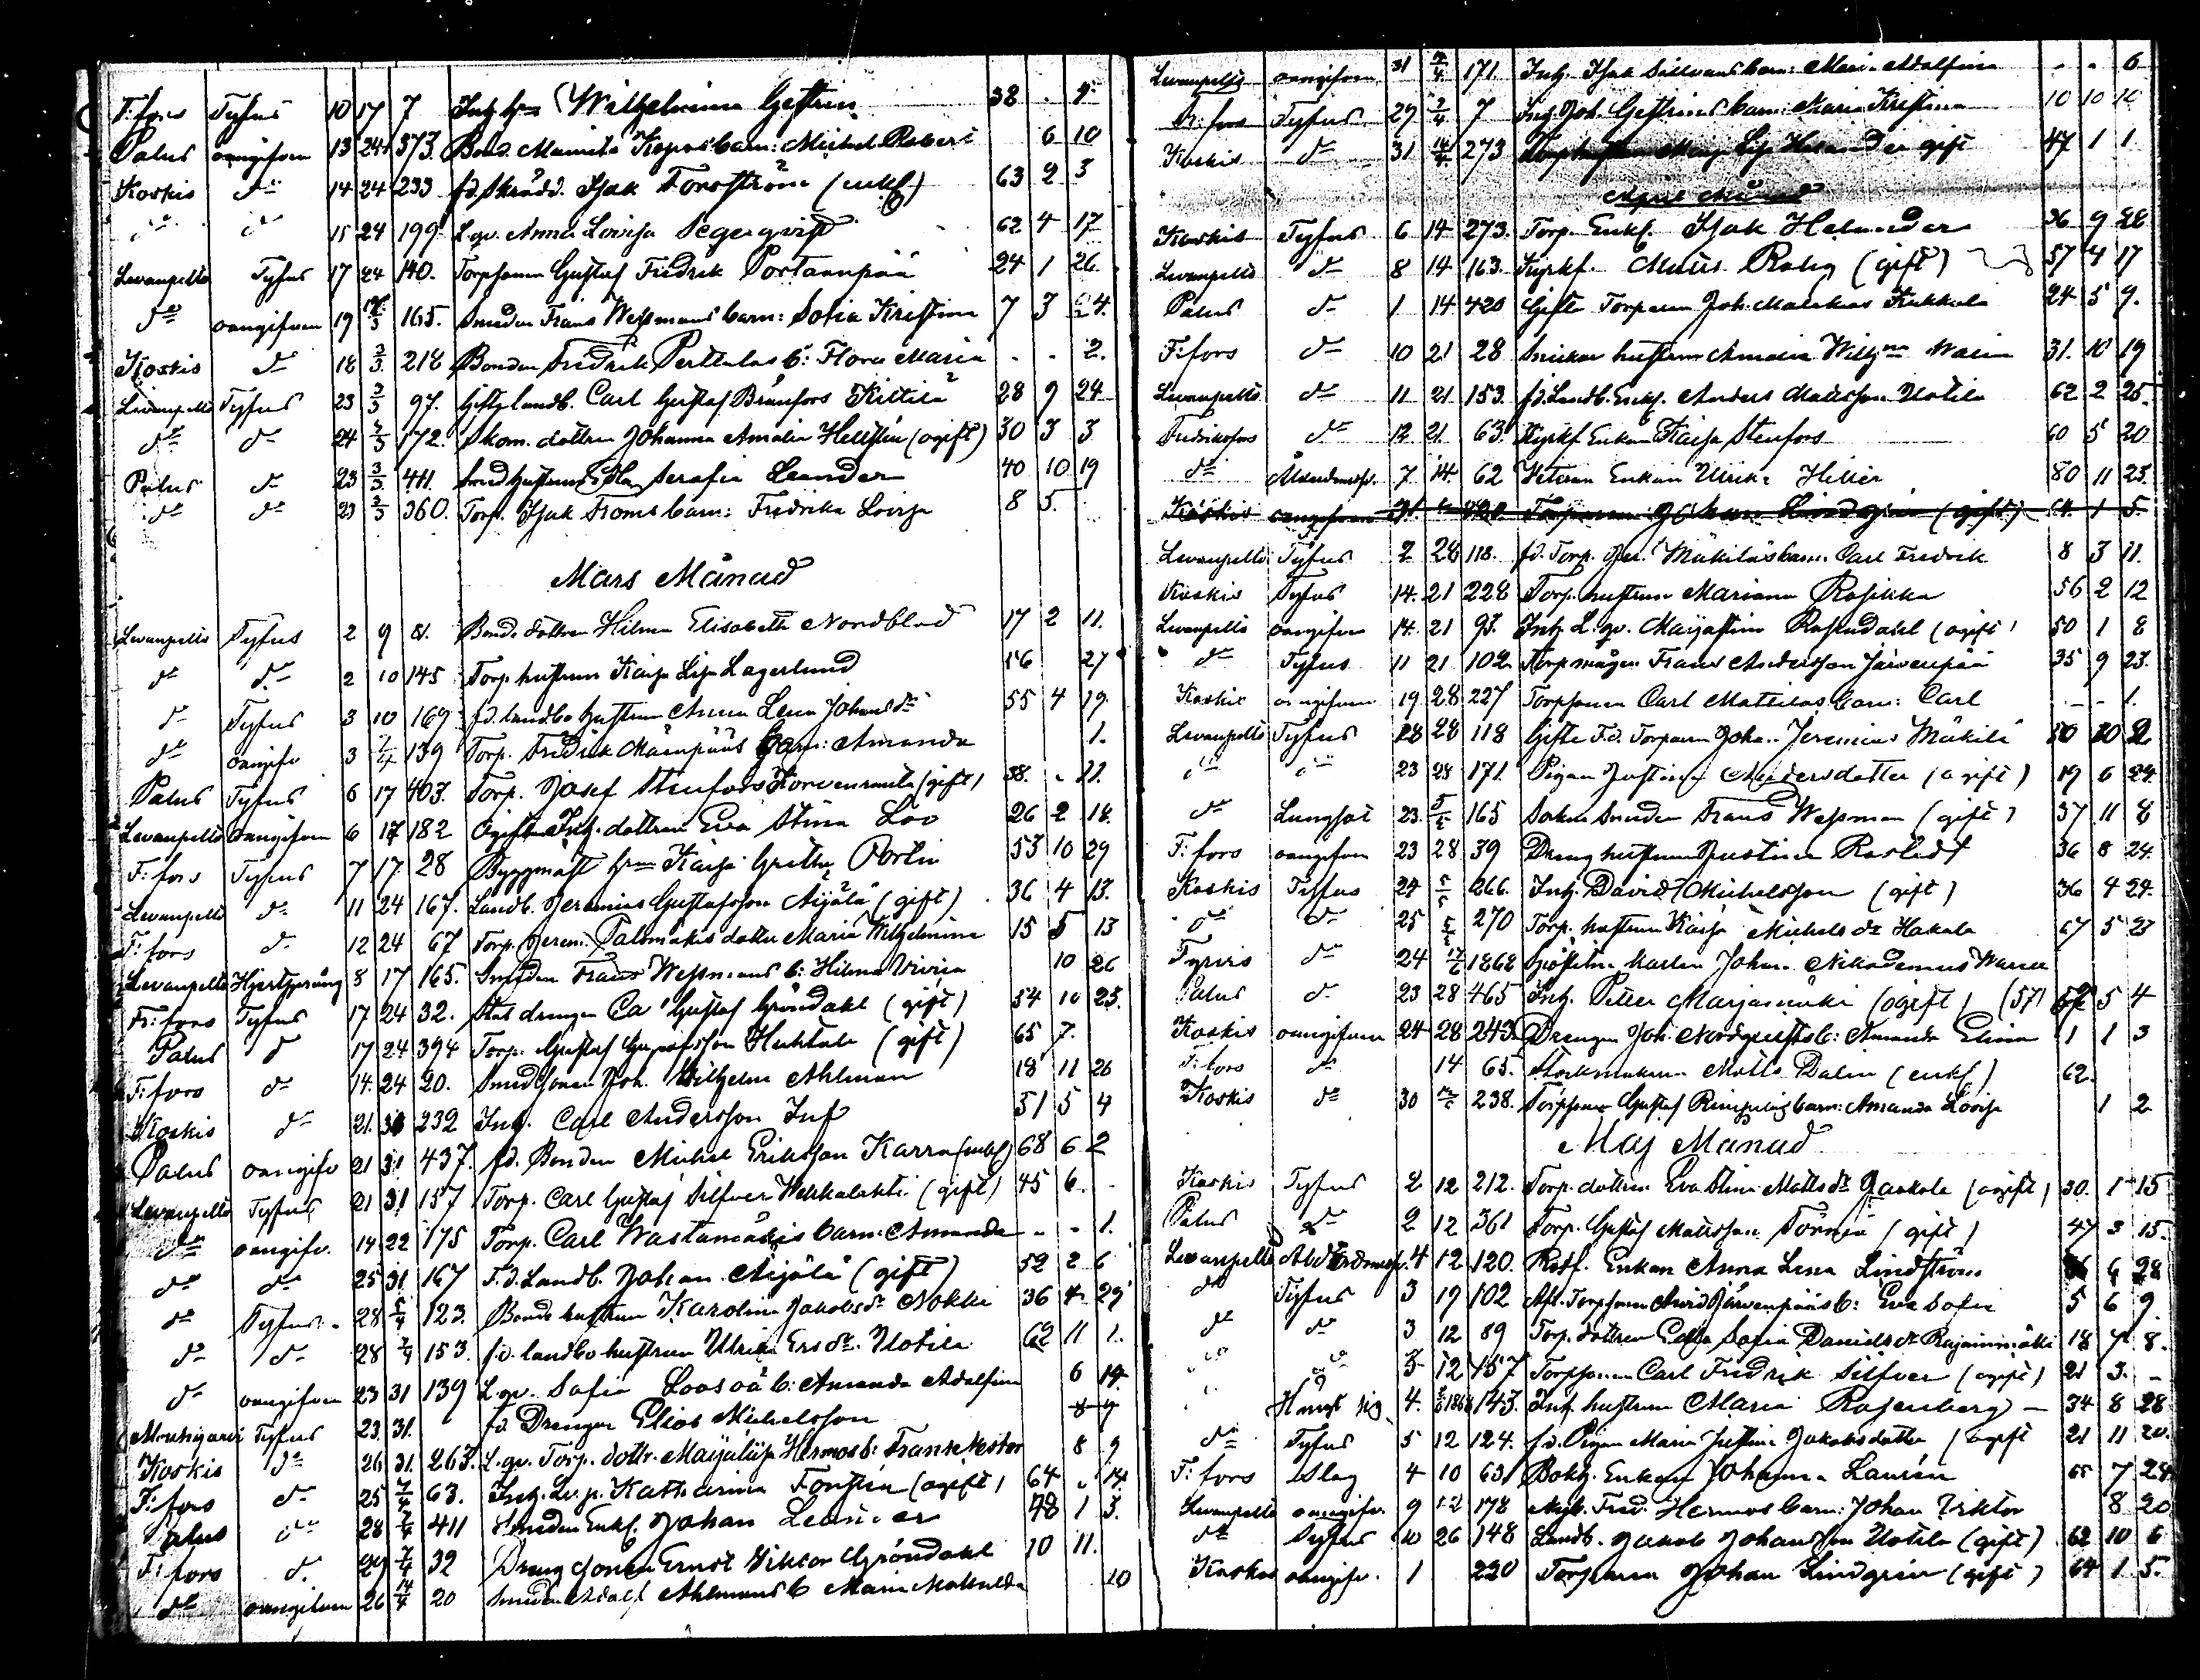 F:fors Tyfus 10 17 7 Inh hn Wilhelmina Gestrin 38 . 9
Palus oangifven 13 24 373. Bond. Mainita Kopos barn: Michel Robert 6 10
Koskis do 14 24 233 fd. Skrädd. Isak Forsström (enkl.) 63 2 3
do do 15 24 199 L.qv. Anna Lovisa Segerqvist 62 4 17
Levanpelto Tyfus 17 24 140. Torpsonen Gustaf Fredrik Portaanpää 24 1 26
do oangifven 19 165. Smeden Frans Wessmans barn: Sofia Kristina 7 3 24.
Koskis do 18 3/3 218 Bonden Fredrik Perttulas b: Flora Maria - - 2.
Levanpelto Tyfus 23 3/3 97. Gifte landb. Carl Gustaf Kittilä 28 9 24
do do 24 3/3 172. Skom. dottren Johanna Amalia Hellstén (ogift) 30 3 3
Palus do 23 3/3 411. Smedhustrun Serafia Leander 40 10 19
do do 23 3/3 360. Torp. Isak Froms barn: Fredrika Lovisa 8 5
Mars Månad
Levanpelto Tyfus 2 9 81. Bonde dottren Hilma Elisabeth Nordblad 17 2 11.
do do 2 10 145 Torp. hustrun Kaisa Lisa Lagerlund 56 27
do Tyfus 3 10 169 fd. landbo hustrun Anna Lena Johansdr 55 4 19.
do oangifv 3 7/4 139 Torp. Fredrik Mäenpääs barn: Amanda 1.
Palus Tyfus 6 17 403. Torp. Josef Stenfors Korvenranta (gift) 38. - 22.
Levanpelto oangifven 6 17 182 Ogifta Inh. dottren Eva Stina Loo 26 2 18.
F:fors Tyfus 7 17 28 Byggmäst hrn Kaisa Greta Portin 53 10 29
Levanpelto do 11 24 167. Landb. Jeremias Gustafsson Äijälä (gift) 36 4 13.
F:fors do 12 24 67 Torp. Jerem. Palomäkis dotter Maria Wilhelmina 15 5 13
Levanpelto Hjertsprång 8 17 165. Smeden Frans Wessmans b: Hilma Vivira 10 26
Fr:fors Tyfus 17 24 32. Stat drengen Carl Gustaf Gröndahl (gift) 54 10 25.
Palus do 17 24 394 Torp. Gustaf Gustafsson Huhtala (gift) 65 7.
F:fors do 14. 24 20. Smedsonen Joh. Wilhelm Ahlman 18 11 26
Koskis do 21. 31 232 Inh. Carl Andersson Inf 51 5 4
Palus oangifv 21 31 437. fd. Bonden Michel Eriksson Karra (enkl) 68 6 2
Levanpelto Tyfus 21 31 157 Torp. Carl Gustaf Silfver Wehkalahti (gift) 45 6. -
do oangifv. 14 22 175 Torp. Carl Wastamäkis barn: Amanda - - 1.
do do 25 31 167 F.d. Landb. Johan Äijälä (gift) 52 2 6
do Tyfus - 28 123. Bonde hustrun Karolina Jakobsdr Nokki 36 4 29
do do 28 7/4 153. f.d. landbo hustrun Ulrika Ersdr. Uotila 62 11 1.
do oangifven 23 31 139 L.qv. Sofia Loosoä b: Amanda Adolfina 6 14.
Tyfus 23 31. fd Drengen Eliab Michelsson 8 9
Koskis do 26 31. 263. L.qv. Torp. dottr. Maijalisa Hermos b: Frans Nestor 8 9
F:fors do 25 7/4 63. Inh. L.p. Katharina Forstén (ogift) 64 . 14.
Palus do 28 7/4 411 Smeden Enkl. Johan Leander 48 1 3.
F:fors do 29 7/4 32 Drengsonen Ernst Viktor Gröndahl 10 11.
do oangifven 26 14/4 20 Smeden Adolf Ahlmans b Maria Mathilda 10
Levanpelto oangifven 31 171 Inh. Isak Sillvans barn: Maria Adolfina - - 6
Fr:fors Tyfus 29 7/4 7 Inh. Joh. Gestrins barn: Maria Kristina 10 10 10
Koskis do 31 14/4 273 Torp hustrun Maija Lisa Helander gift 47 1 1
April Månad
Koskis Tyfus 6 14 273. Torp. Enkl. Isak Helander 36 9 28
Levanpelto do 8 14 163. Kyrkf. Matts Raleg (gift) 57 4 17
Palus do 1 14 420 Gifte Torparen Joh. Malakias Kukkola 24 5 9.
F:fors do 10 21 28 Snickar hustrun Amalia Wilhna Walin 31. 10 19
Levanpelto do 11 21 153. f.d. Landb. Enkl. Anders Mattsson Uotila 62 2 25.
Fredriksfors do 12 21 63. Kyrkf Enkan Kaisa Stenfors 60 5 20
do Ålderdomsf. 7 14. 62 Veteran Enkan Ulrika Hellén 80 11 23.
Koskis oangifven 220. Torparen Johan Lindgrén (gift) 64. 1 5.
Levanpelto Tyfus 2 28 118. f.d. Torp. Jer. Mäkiläs barn. Carl Fredrik 8 3 11.
Koskis Tyfus 14. 21 228 Torp. hustrun Mariana Rosikka 56 2 12
Levanpelto oangifven 14. 21 93. Inh. L.qv. Maijastina Rosendahl (ogift) 50 1 8
do Tyfus 11 21 102. Torp mågen Frans Andersson Järvenpää 35 9 23.
Koskis oangifven 19 28 227 Torpsonen Carl Mattilas barn: Carl - - 1.
Levanpelto Tyfus 28 28 118 Gifte F.d. Torparen Johan Jeremias Mäkilä 50 10 2
do do 23 28 171. Pigan Justina Andersdotter (ogift) 19 6 24
do Lungsot 23. 5/5 165 Socken Smeden Frans Wessman (gift) 37 11 8
F:fors oangifven 23 28 39 Dreng hustrun Justina Rostedt 36 8 24.
Koskis Tyfus 24 5/5 266. Inh. David Michelsson (gift) 36 4 24.
do do 25 5/5 270 Torp. hustrun Kaisa Michelsdr Hakala 67 5 23
Tyrvis do 24 1868 Johan Nikodemus
Palus do 23 28 465 Inh. Petter Marjamäki (ogift) (57) 57 5 4
Koskis oangifven 24 28 243. Drengen Joh. Nordqvists b: Amanda Elina 1 1 3
F:fors do 14 65. Storkmakaren Matts Dalin (enkl) 62.
Koskis do 30 238. Torpsonen Gustaf barn: Amanda Lovisa 1 2
Maj Månad
Koskis Tyfus 2 12 212. Torp. dottren Eva Stina Mattsdr Jaakola (ogift) 30. 1 15
Palus do 2 12 361 Torp. Gustaf Mattsson Törmä (gift) 47 3 15.
Levanpelto Ålderdomsf. 4 12 120. Rotf. Enkan Anna Lena Lindström 6 28
do Tyfus 3 19 102 Afl. Torpsonen Arvid Järvenpääs b: Eva Sofia 5 6 9
do do 3 12 89 Torp. dottren Edla Sofia Danielsdr Rajaninmäki 18 7 8.
do do 5 12 157 Torpsonen Carl Fredrik Silfver (ogift) 21 3. -
Hängt sig 4. 1868 143. Inh. hustrun Maria Rosenberg - 34 8 28
do Tyfus 5 12 124. f.d. Pigan Maria Justina Jakobsdotter (ogift 21 11 20.
F:fors Slag 4 10 63 Bokh. Enkan Johanna Laurén 65 7 24
Levanpelto oangifv. 9 12 178 Fred. Hermos barn: Johan Viktor 8 20
do Tyfus 10 26 148 Landb. Jakob Johansson Uotila (gift) 62 10 6
Koskis oangifv. 1 220 Torparen Johan Lindgrén (gift) 64 1 5.